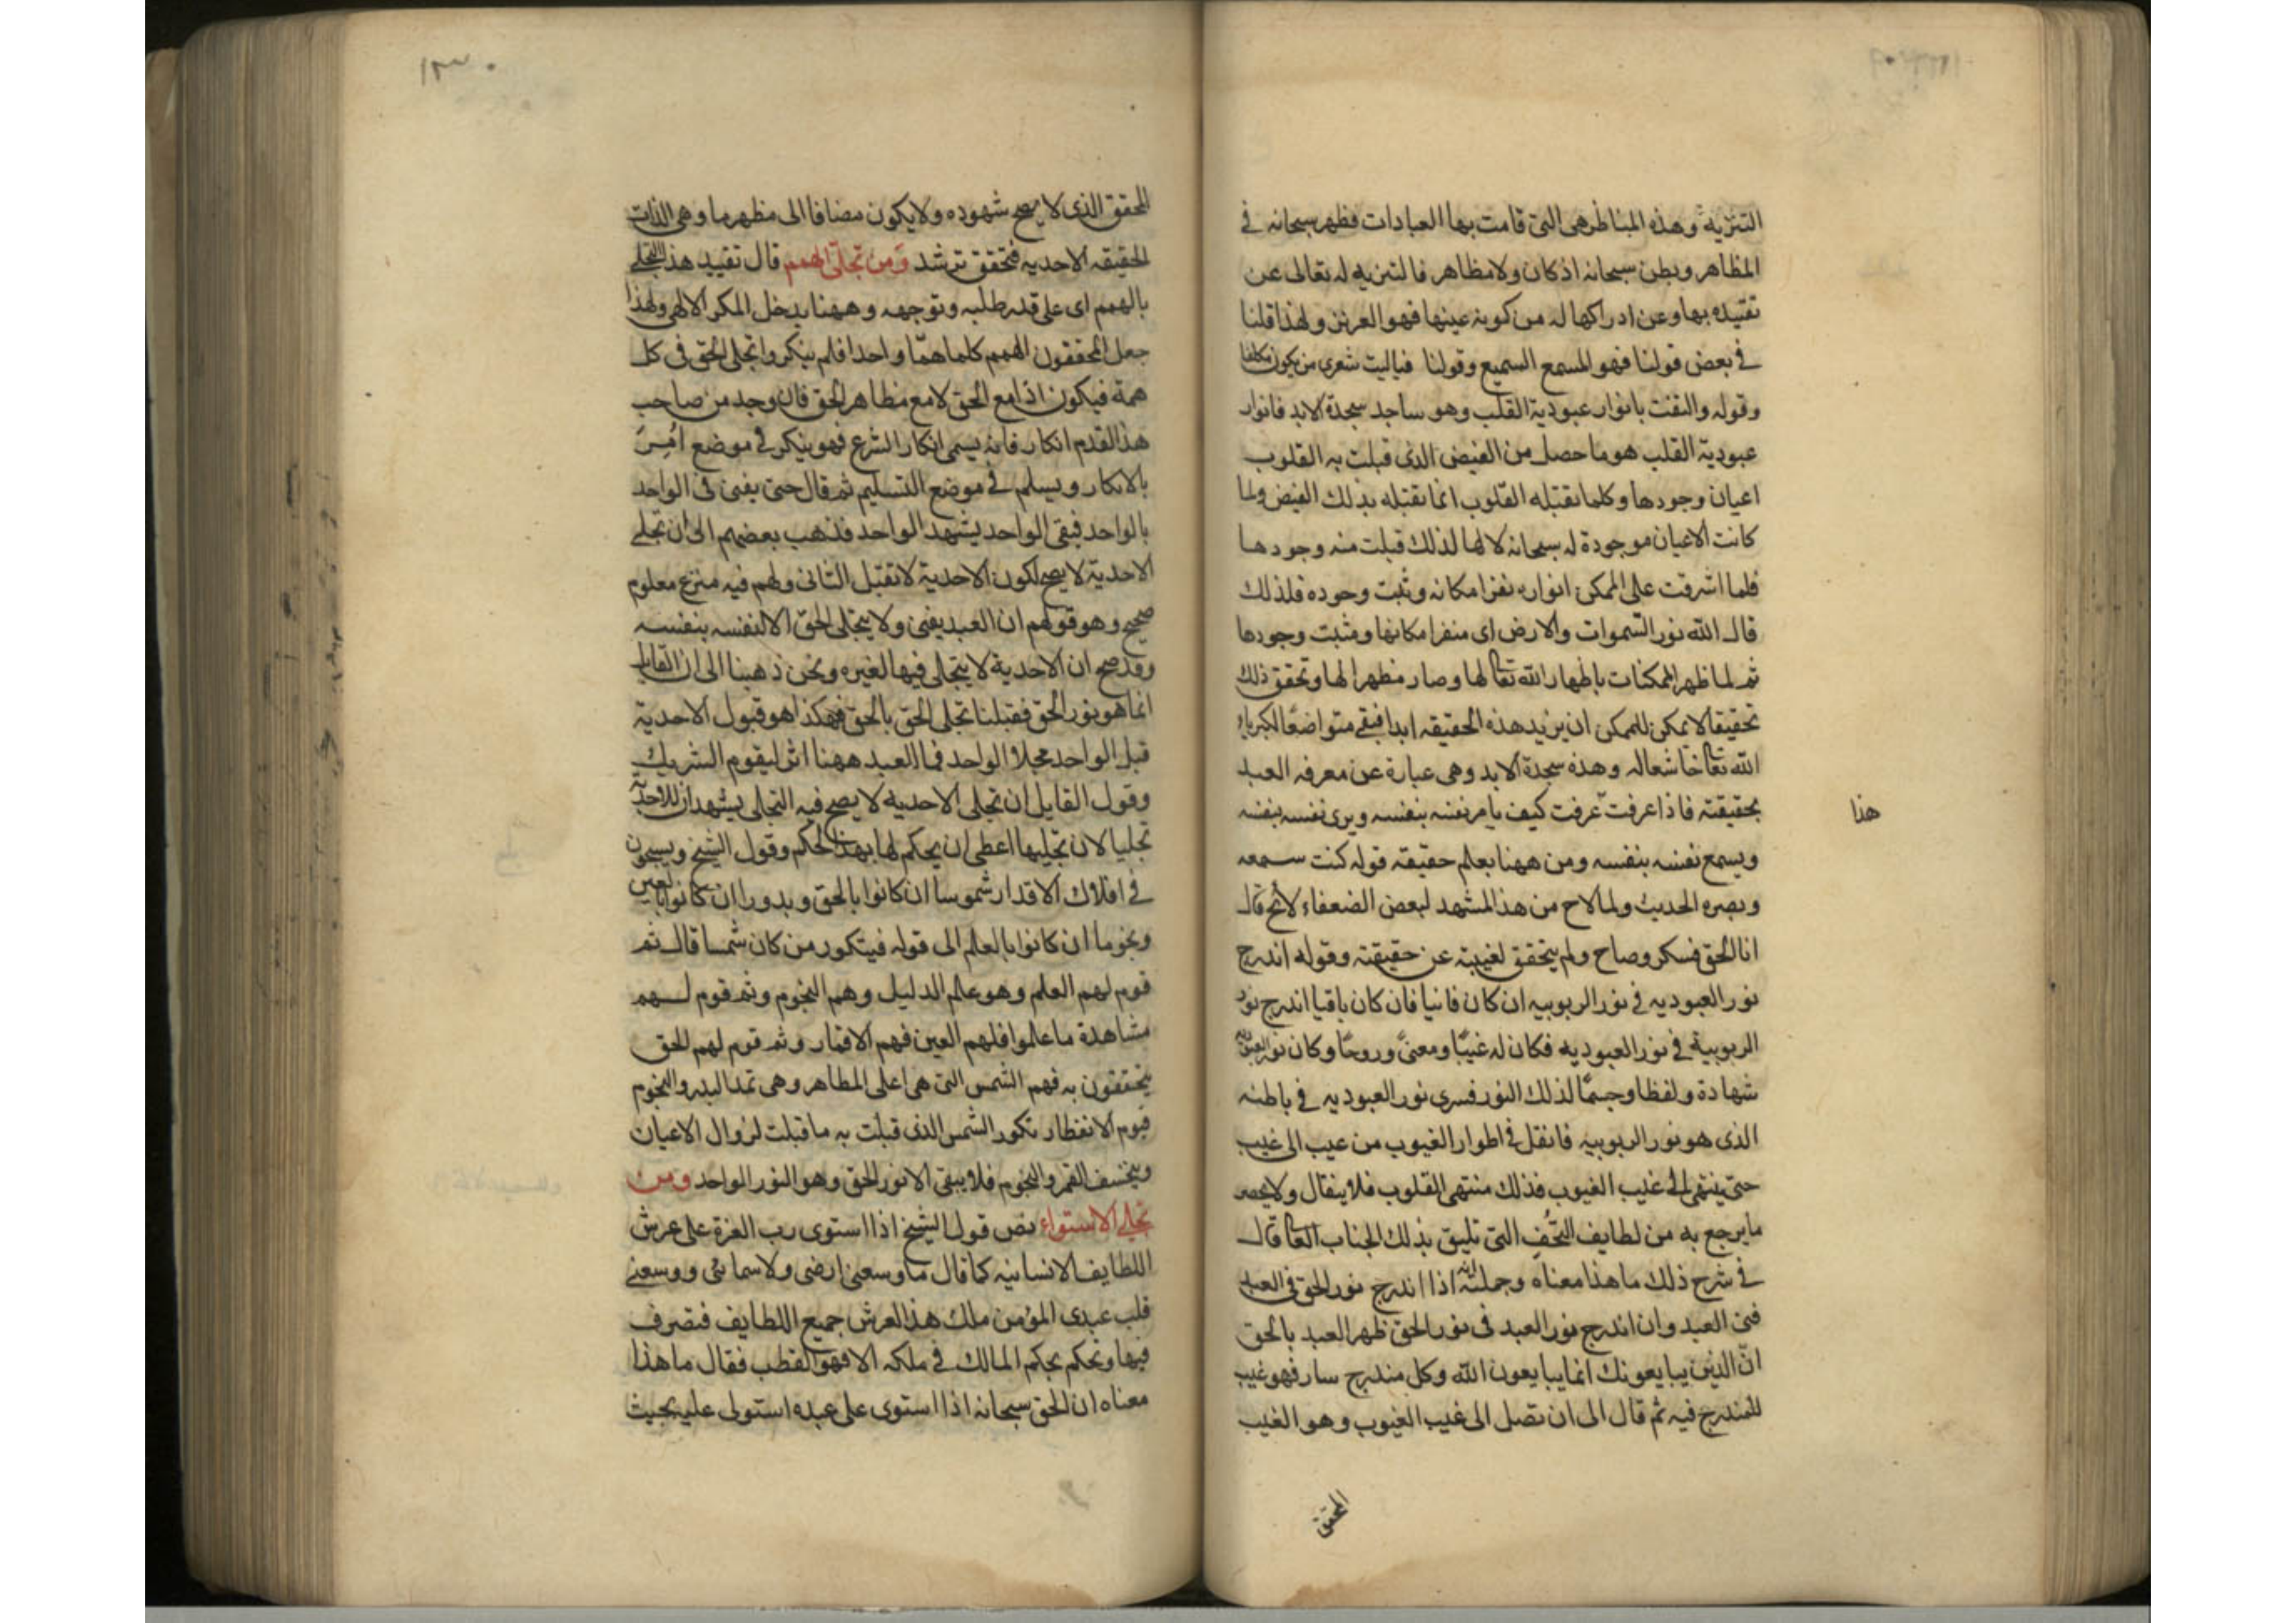 التنزيه وهذه المناظر هى التى قامت بها العبادات فظهر سبحانه فى
المظاهر وبطن سبحانه اذ كان ولا مظاهر فالتنزيه له تعالى عن
تقيده بها وعن ادراكها له من كونه عينها فهو العزيز ولهذا قلنا
فى بعض قولنا فهو المسمع السميع وقولنا فياليت شعرى من يكون مكلفا
وقوله والتفت بانوار عبودية القلب وهو ساجد سجدة الابد فانوار
عبودية القلب هو ما حصل من الفيض الذى قبلت به القلوب
اعيان وجودها وكلما تقبله القلوب انما تقبله بذلك الفيض ولما
كانت الاعيان موجودة له سبحانه لا لها لذلك قبلت منه وجودها
فلما اشرقت على الممكن انواره نفر امكانه وثبت وجوده فلذلك
قال الله نور السموات والارض اى منفر امكانها ومثبت وجودها
ثم لما ظهر الممكنات باظهار الله تعالى لها وصار مظهرا لها وتحقق ذلك
تحقيقا لا يمكن للممكن ان يزيد هذه الحقيقه ابدا فبقى متواضعا لكبرياء
الله تعالى خاشعا له وهذه سجدة الابد وهى عبارة عن معرفه العبد
بحقيقته فاذا عرفت عرفت كيف يامر نفسه بنفسه ويرى نفسه بنفسه
هذا
ويسمع نفسه بنفسه ومن ههنا يعلم حقيقه قوله كنت سمعه
وبصره الحديث ولما لاح من هذا المشهد لبعض الضعفاء لائح قال
انا الحق فسكر وصاح ولم يتحقق لغيبته عن حقيقته وقوله اندرج
نور العبوديه فى نور الربوبيه ان كان فانيا فان كان باقيا اندرج نور
الربوبية فى نور العبوديه فكان له غيبا ومعنى وروحا وكان نور العبودية
شهادة ولفظا وجسما لذلك النور فسرى نور العبوديه فى باطنه
الذى هو نور الربوبيه فانقل فى اطوار الغيوب من غيب الى غيب
حتى ينتهى الى غيب الغيوب فذلك منتهى القلوب فلا ينقال ولا يحصر
ما يرجع به من لطايف التحف التى تليق بذلك الجناب العالى قال
فى شرح ذلك ما هذا معناه وجملته انه اذا اندرج نور الحق فى العبد
فنى العبد وان اندرج نور العبد فى نور الحق ظهر العبد بالحق
ان الذين يبايعونك انما يبايعون الله وكل مندرج سار فهو غيب
للمندرج فيه ثم قال الى ان تصل الى غيب الغيوب وهو الغيب
المحقق
١٣٠
المحقق الذى لا يصح شهوده ولا يكون مضافا الى مظهر ما وهى الذات
الحقيقه الاحديه فتحقق ترشد ومن تجلى الهمم قال تقييد هذا التجلى
بالهمم اى على قدر طلبه وتوجهه وههنا يدخل المكر الالهى ولهذا
جعل المحققون الهمم كلها هما واحدا فلم ينكروا تجلى الحق فى كل
همة فيكون اذا مع الحق لا مع مظاهر الحق فان وجد من صاحب
هذا القدم انكار فانه يسمى انكار الشرع فهو ينكر فى موضع امر
بالانكار ويسلم فى موضع التسليم ثم قال حتى يفنى فى الواحد
بالواحد فيبقى الواحد يشهد الواحد فذهب بعضهم الى ان تجلى
الاحدية لا يصح لكون الاحدية لا تقبل الثانى ولهم فيه منزع معلوم
صحيح وهو قولهم ان العبد يفنى ولا يتجلى الحق الا لنفسه بنفسه
وقد صح ان الاحدية لا يتجلى فيها لغيره ونحن ذهبنا الى ان القابل
انما هو نور الحق فقبلنا تجلى الحق بالحق فهكذا هو قبول الاحدية
قبل الواحد مجلا الواحد فما للعبد ههنا اثر ليقوم الشريك
وقول القايل ان تجلى الاحديه لا يصح فيه التجلى يشهد ان للاحدية
تجليا لان تجليها اعطى ان يحكم لها بهذا الحكم وقول الشيخ ويسبحون
فى افلاك الاقدار شموسا ان كانوا بالحق وبدورا ان كانوا بالعين
ونجوما ان كانوا بالعلم الى قوله فيتكور من كان شمسا قال ثم
قوم لهم العلم وهو عالم الدليل وهم النجوم وثم قوم لهم
مشاهدة ما علموا فلهم العين فهم الاقمار وثم قوم لهم الحق
يتحققون به فهم الشمس التى هى اعلى المظاهر وهى تمد البدر والنجوم
فيوم الانفطار تكور الشمس الذى قبلت به ما قبلت لزوال الاعيان
وينخسف القمر والنجوم فلا يبقى الا نور الحق وهو النور الواحد ومن
تجلى الاستواء نص قول الشيخ اذا استوى رب العزة على عرش
اللطايف الانسانيه كما قال ما وسعنى ارضى ولا سمائى ووسعنى
قلب عبدى المؤمن ملك هذا العرش جميع اللطايف فتصرف
فيها وتحكم بحكم المالك فى ملكه الا فهو القطب فقال ما هذا
معناه ان الحق سبحانه اذا استوى على عبده استولى عليه بحيث